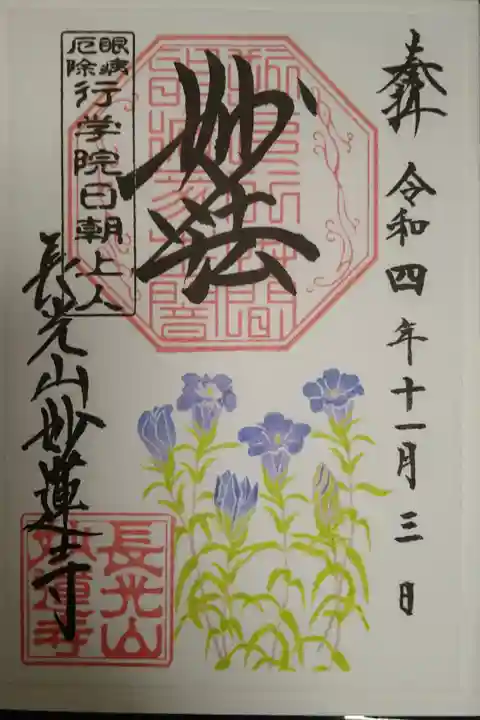 奉拝 令和四年十一月三日
妙法
眼病
厄除
行学院日朝上人
長光山妙蓮寺
長光山
妙蓮寺